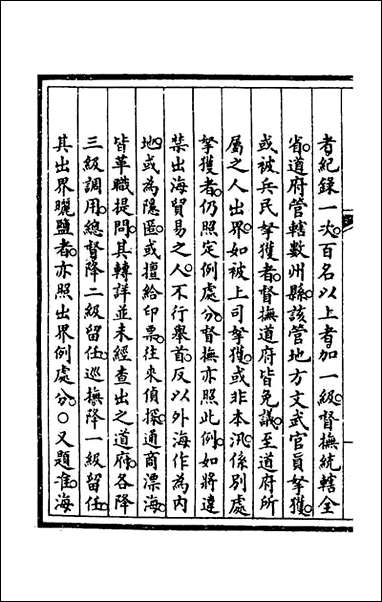 者紀錄一次百名以上者加一級督撫統轄全
省道府管轄數州縣該管地方文武官員拏獲
或被兵民拏獲者督撫道府皆免議至道府所
屬之人出界如被上司拏獲或非本汛係別處
拏獲者仍照定例處分督撫亦照此例如將違
禁出海貿易之人不行舉首反以外海作為内
地或為隱匿或擅給印票往來偵探通商漂海
皆革職提問其轉詳並未經查出之道府各降
三級調用總督降二級留任巡撫降一級留任
其出界曬鹽者亦照出界例處分〇又題准海